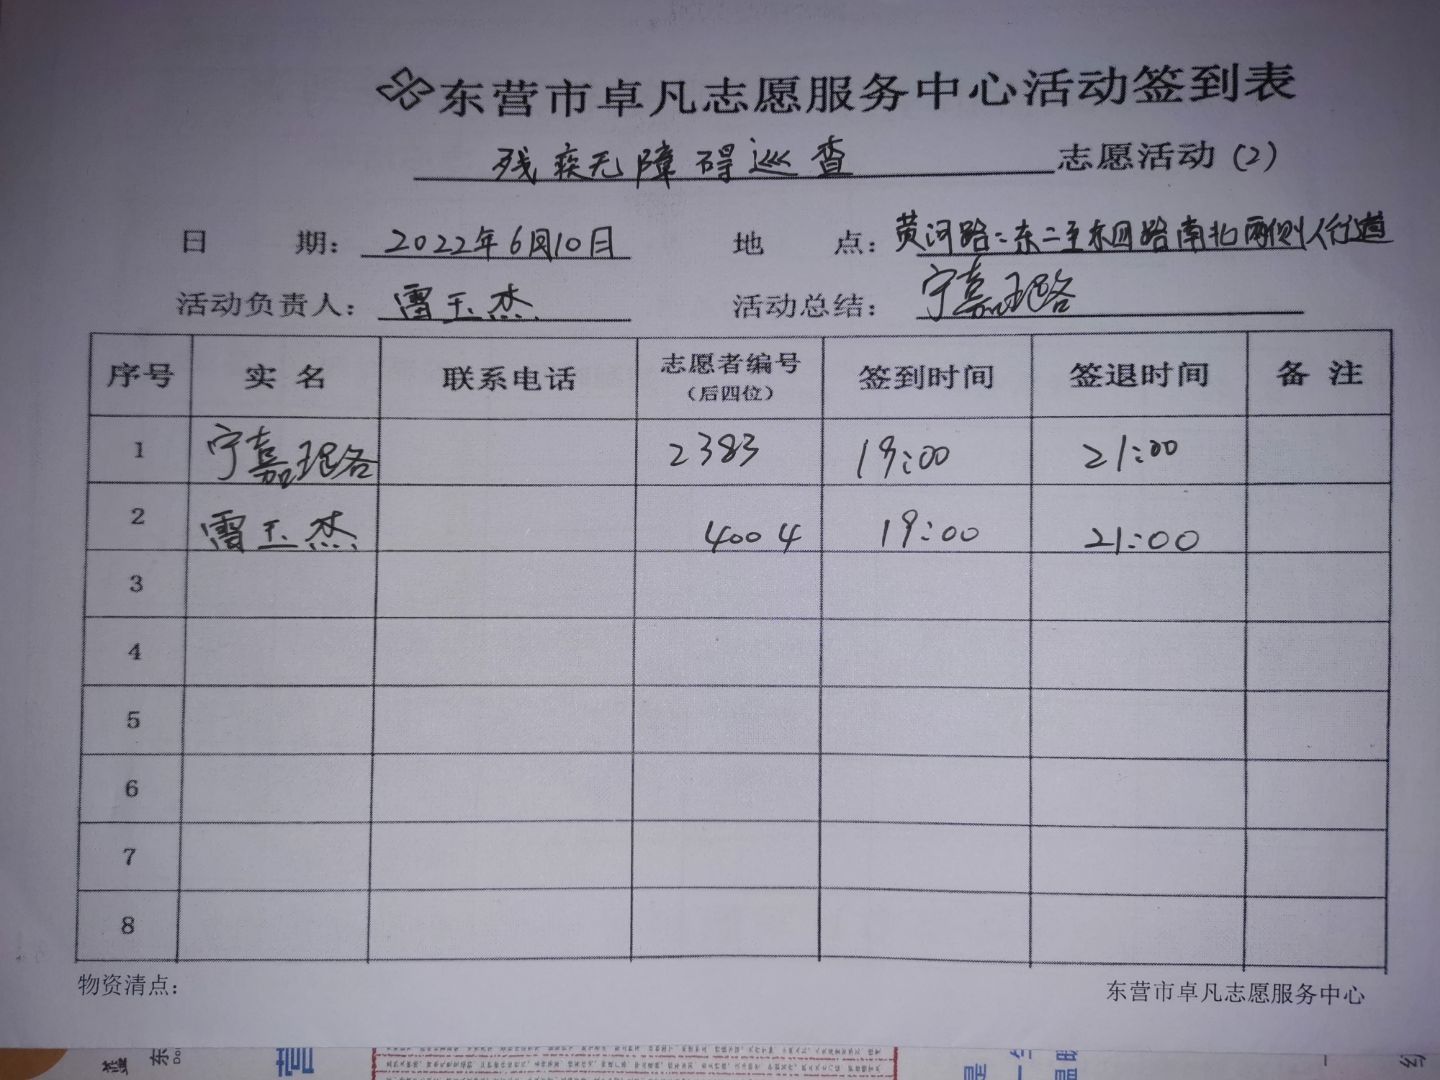 东营市卓凡志愿服务中心活动签到表
残疾无障碍巡查 志愿活动(2)
日 期: 2022年6月10日 地 点: 黄河路:东二至东四路南北两侧人行道
活动负责人: 雷玉杰 活动总结: 宁嘉珞
序号 实 名 联系电话 志愿者编号(后四位) 签到时间 签退时间 备 注
1 宁嘉珞 2383 19:00 21:00
2 雷玉杰 4004 19:00 21:00
3
4
5
6
7
8
物资清点: 东营市卓凡志愿服务中心
东
营